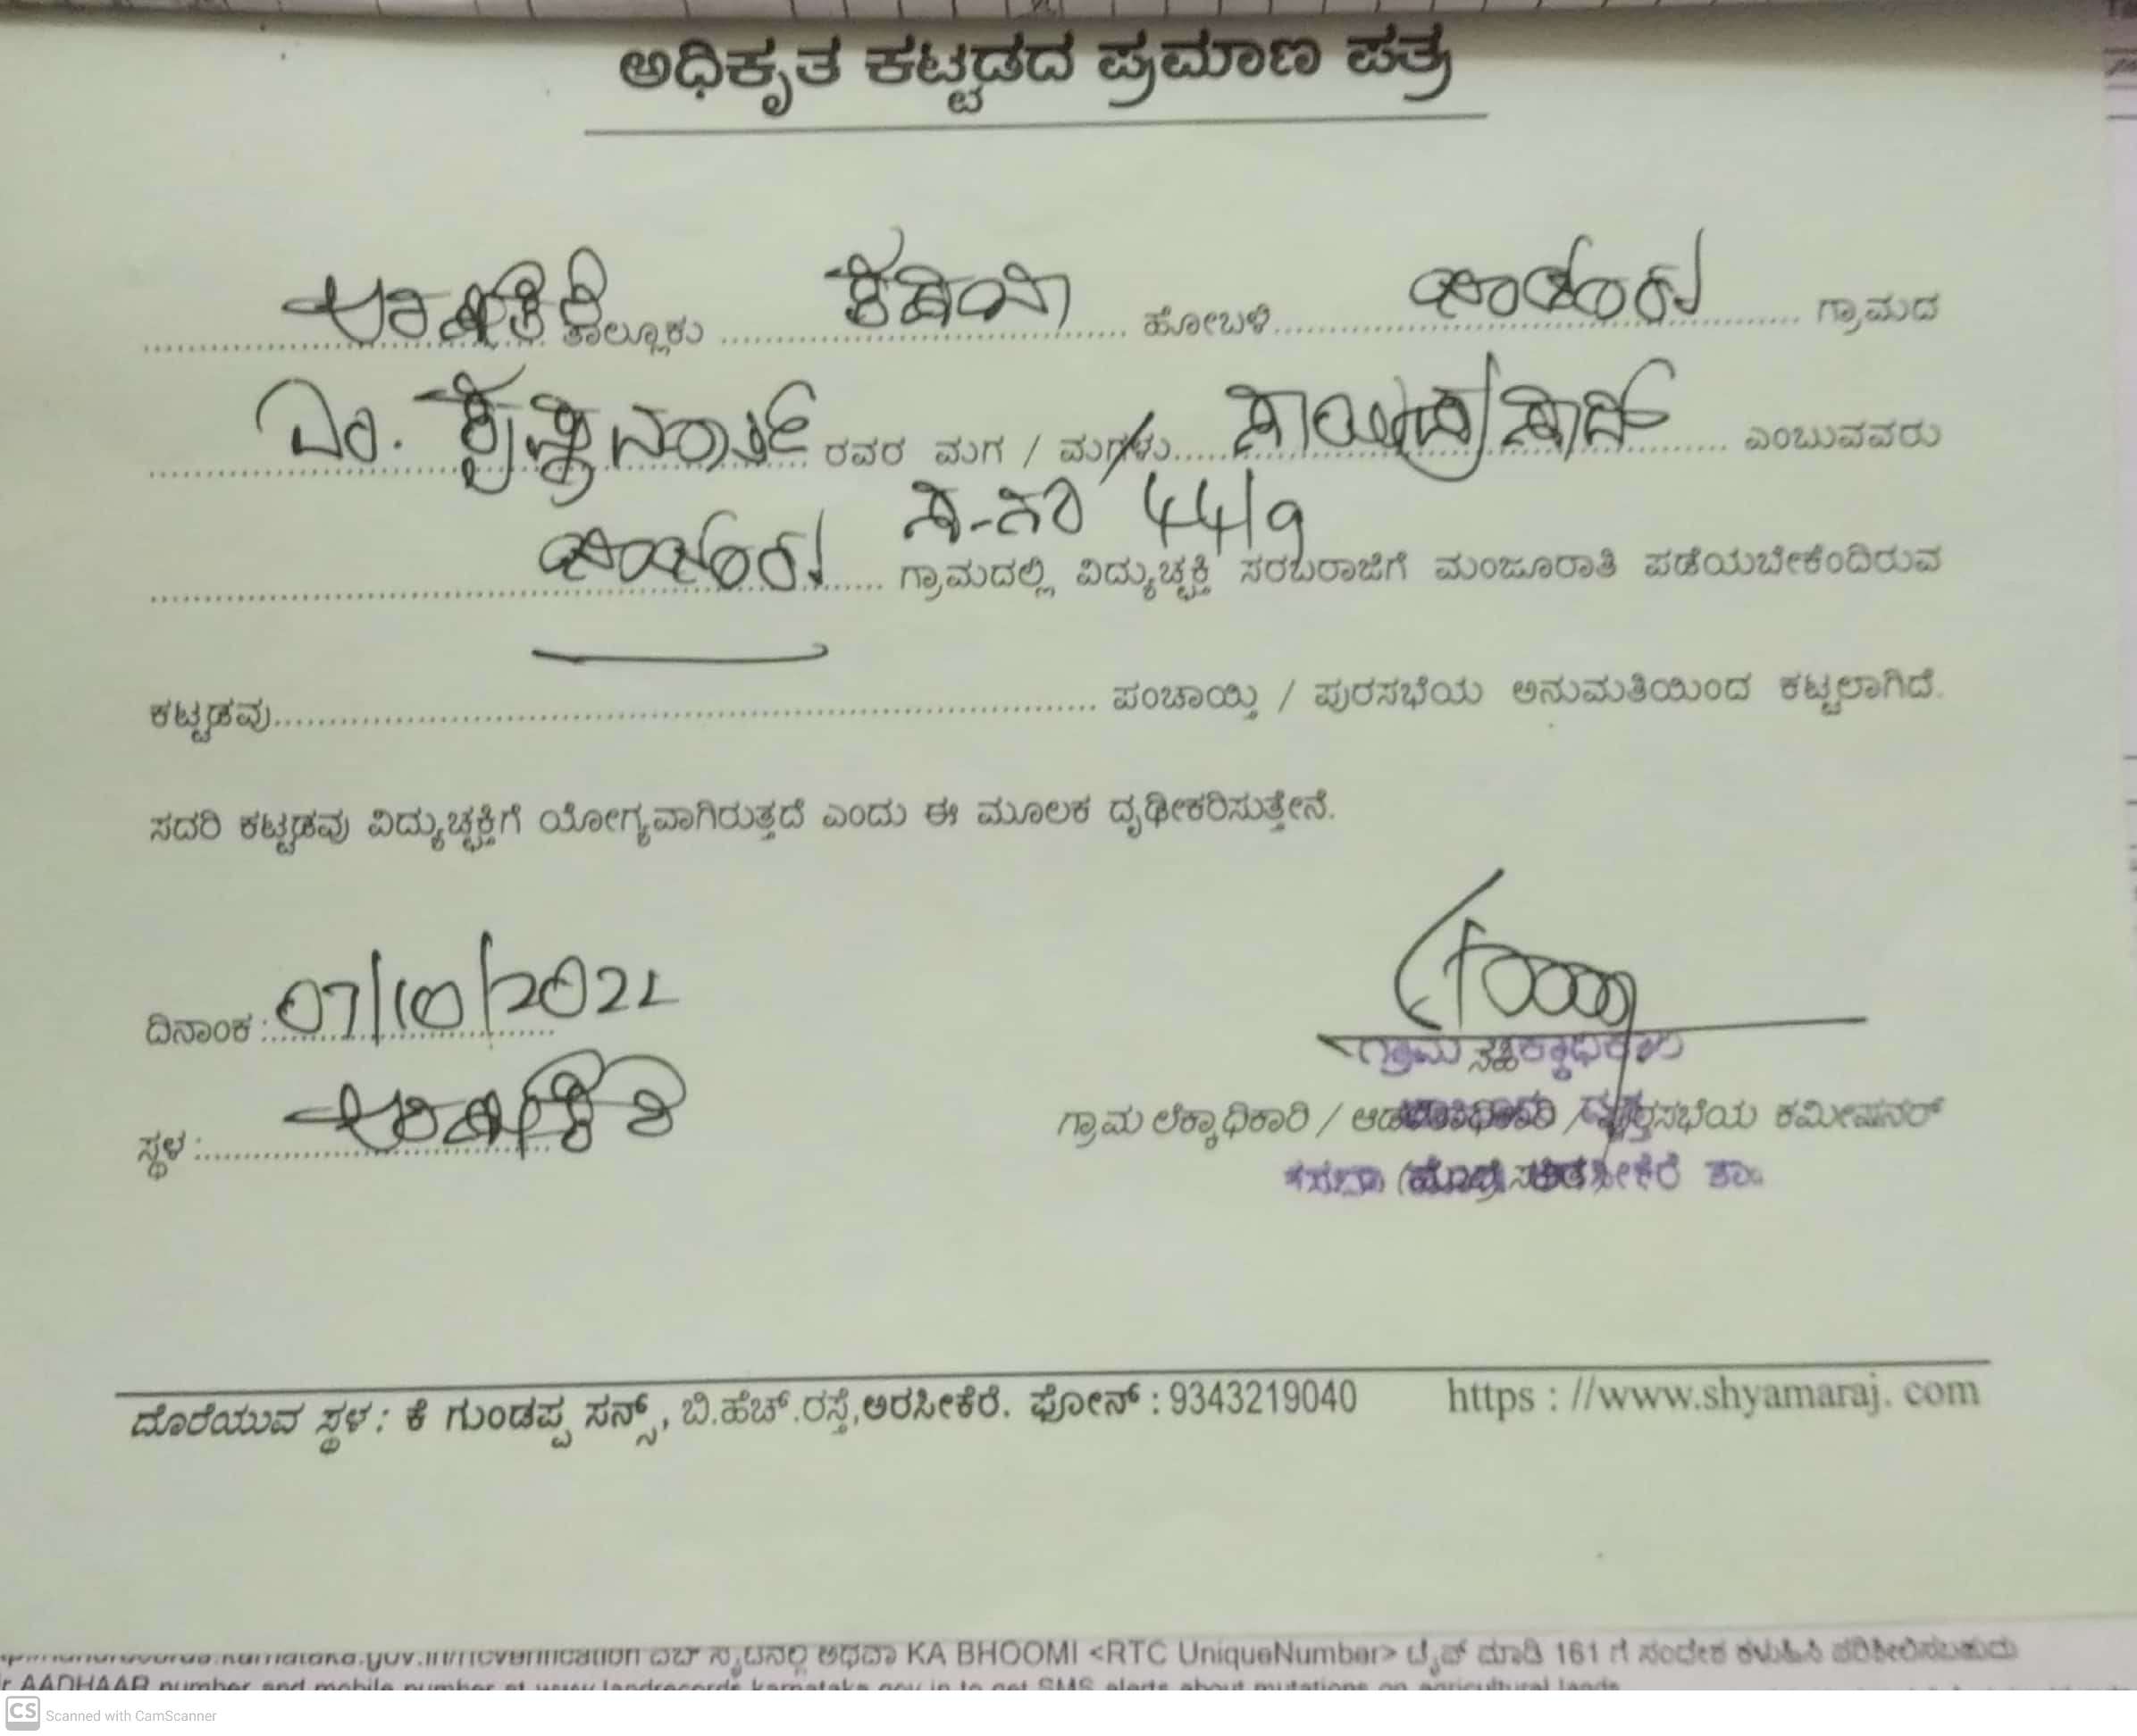 ಅಧಿಕೃತ ಕಟ್ಟಡದ ಪ್ರಮಾಣ ಪತ್ರ
ಅರಸೀಕೆರೆ ತಾಲ್ಲೂಕು ಕಸಬಾ ಹೋಬಳಿ ಗ್ರಾಮದ
ಎಂ. ಕೃಷ್ಣಮೂರ್ತಿ ರವರ ಮಗ / ಮಗಳು ಸಾಯಿಪ್ರಸಾದ್ ಎಂಬುವವರು
ಸ.ನಂ 44/9
ಗ್ರಾಮದಲ್ಲಿ ವಿದ್ಯುಚ್ಛಕ್ತಿ ಸರಬರಾಜಿಗೆ ಮಂಜೂರಾತಿ ಪಡೆಯಬೇಕೆಂದಿರುವ
ಕಟ್ಟಡವು ಪಂಚಾಯ್ತಿ / ಪುರಸಭೆಯ ಅನುಮತಿಯಿಂದ ಕಟ್ಟಲಾಗಿದೆ.
ಸದರಿ ಕಟ್ಟಡವು ವಿದ್ಯುಚ್ಛಕ್ತಿಗೆ ಯೋಗ್ಯವಾಗಿರುತ್ತದೆ ಎಂದು ಈ ಮೂಲಕ ದೃಢೀಕರಿಸುತ್ತೇನೆ.
ದಿನಾಂಕ : 07/10/2021
ಸ್ಥಳ : ಅರಸೀಕೆರೆ
ಸಹಿ
ಗ್ರಾಮ ಲೆಕ್ಕಾಧಿಕಾರಿ / ಕಮೀಷನರ್
ದೊರೆಯುವ ಸ್ಥಳ : ಕೆ ಗುಂಡಪ್ಪ ಸನ್ಸ್, ಬಿ.ಹೆಚ್.ರಸ್ತೆ,ಅರಸೀಕೆರೆ. ಫೋನ್ : 9343219040 https : //www.shyamaraj. com
ಅಥವಾ KA BHOOMI <RTC UniqueNumber> ಟೈಪ್ ಮಾಡಿ 161 ಗೆ ಸಂದೇಶ ಕಳುಹಿಸಿ ಪರಿಶೀಲಿಸಬಹುದು
AADHAAR number and mobile number at www.landrecords.karnataka.gov.in to get SMS alerts about mutations on agricultural lands
CS Scanned with CamScanner